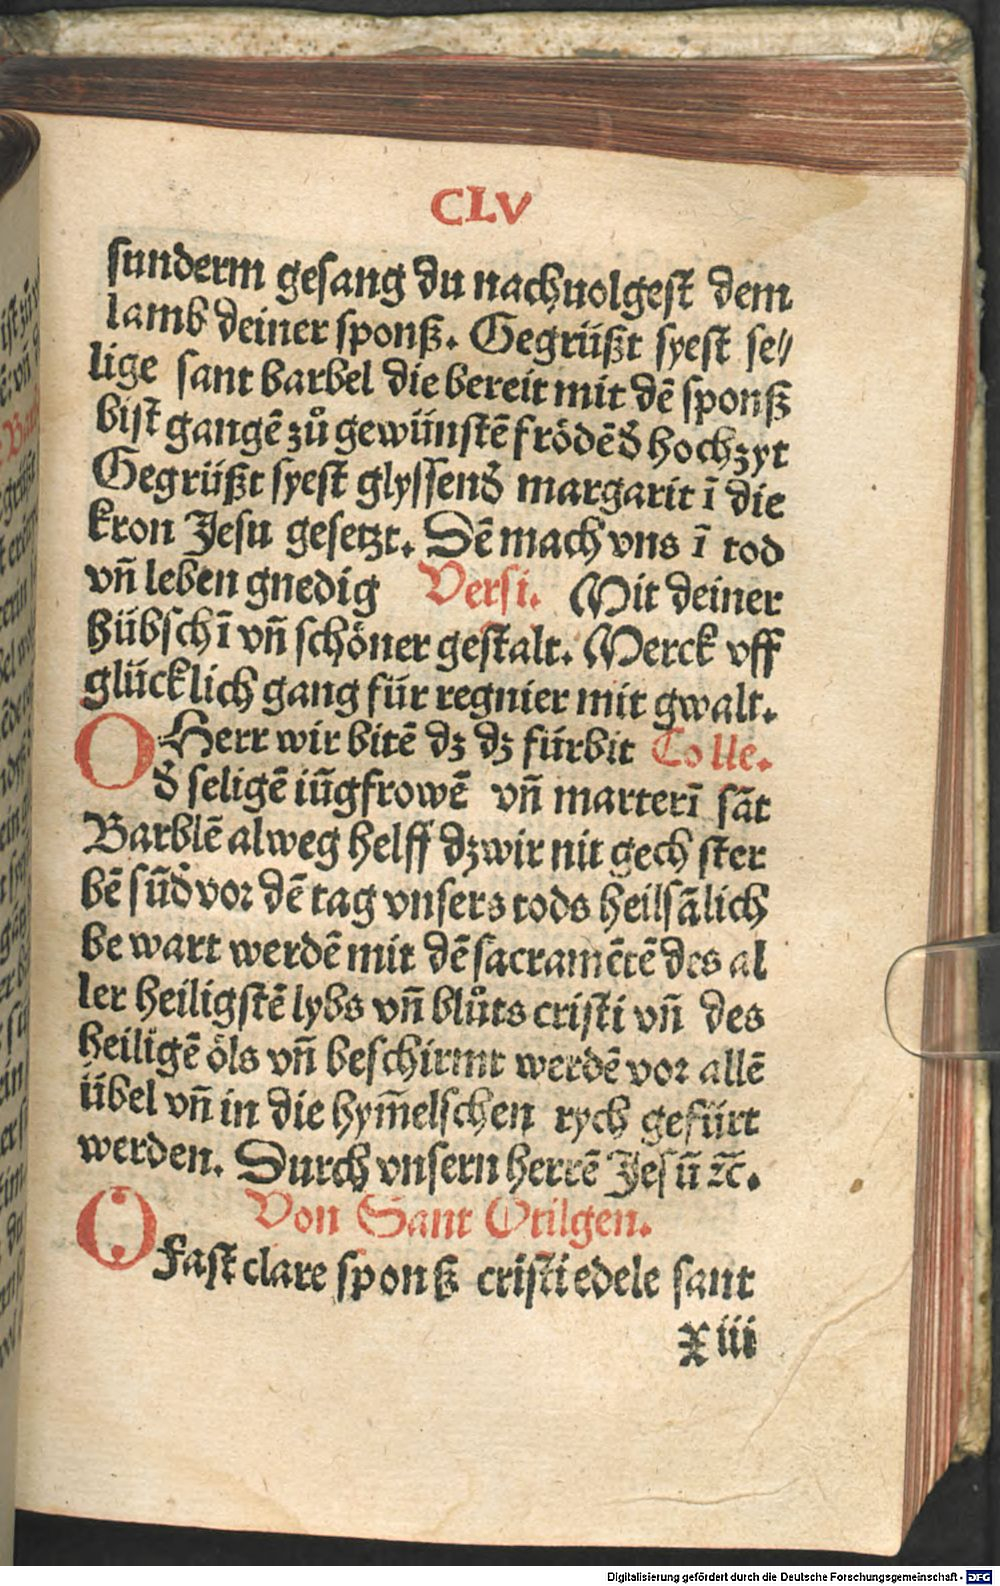 CLV
sunderm gesang du nachuolgest dem
lamb deiner sponß. Gegrüßt syest se⸗
lige sant barbel die bereit mit dē sponß
bist gangē zů gewünstē frödē đ hochzyt
Gegrüßt syest glyssenđ margarit ī die
kron Jesu gesetzt. Dē mach vns ī tod
vn̄ leben gnedig Versi. Mit deiner
hübschī vn̄ schöner gestalt. Merck vff
glücklich gang für regnier mit gwalt.
O Herr wir bitē dz dz fürbit Colle.
đ seligē iūgfrowē vn̄ marterī sāt
Barblē alweg helff dz wir nit gech ster
bē sūđ vor dē tag vnsers tods heilsālich
be wart werdē mit dē sacramētē des al
ler heiligstē lybs vn̄ blůts cristi vn̄ des
heiligē öls vn̄ beschirmt werdē vor allē
übel vn̄ in die hym̄elschen rych gefürt
werden. Durch vnsern herrē Jesū ⁊c̄.
Von Sant Otilgen.
O Fast clare sponß cristi edele sant
x iii
Digitalisierung gefördert durch die Deutsche Forschungsgemeinschaft - DFG